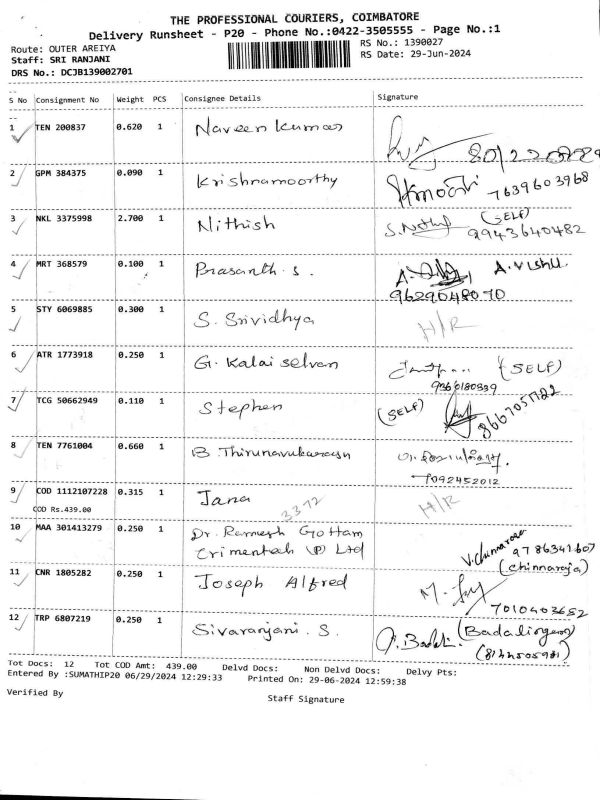 THE PROFESSIONAL COURIERS, COIMBATORE
Delivery Runsheet - P20 - Phone No.:0422-3505555 - Page No.:1
Route: OUTER AREIYA
RS No.: 1390027
Staff: SRI RANJANI
RS Date: 29-Jun-2024
DRS No.: DCJB139002701
S No Consignment No Weight PCS Consignee Details Signature
1 TEN 200837 0.620 1 Naveen Kumar
2 GPM 384375 0.090 1 Krishnamoorthy
7639603968
3 NKL 3375998 2.700 1 Nithish (SELF)
9943640482
4 MRT 368579 0.100 1 Prasanth. S. A. Vishu.
9629048070
5 STY 6069885 0.300 1 S. Srividhya H/R
6 ATR 1773918 0.250 1 G. Kalai selvan (SELF)
9360180339
7 TCG 50662949 0.110 1 Stephen (SELF)
8667051722
8 TEN 7761004 0.660 1 B. Thirunavukarasu
7092452012
9 COD 1112107228 0.315 1 Jana H/R
COD Rs.439.00
3372
10 MAA 301413279 0.250 1 Dr. Ramesh Gottam
Crimentech (P) Ltd
9786341607
(chinnaraja)
11 CNR 1805282 0.250 1 Joseph Alfred
7010403652
12 TRP 6807219 0.250 1 Sivaranjani. S.
Tot Docs: 12 Tot COD Amt: 439.00 Delvd Docs: Non Delvd Docs: Delvy Pts:
Entered By :SUMATHIP20 06/29/2024 12:29:33 Printed On: 29-06-2024 12:59:38
Verified By
Staff Signature